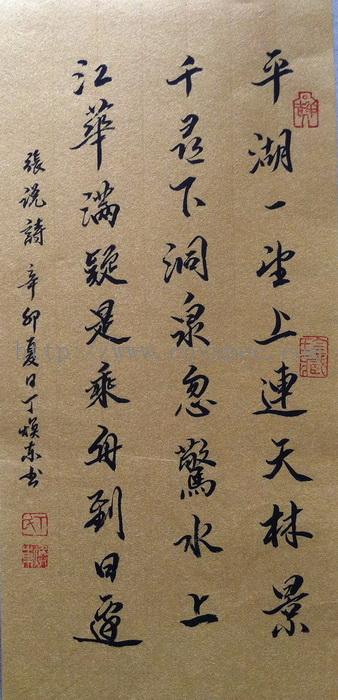 平湖一望上連天林景
千尋下洞泉忽驚水上
江華滿疑是乘舟到日邊
張说詩 辛卯夏日丁焕东书